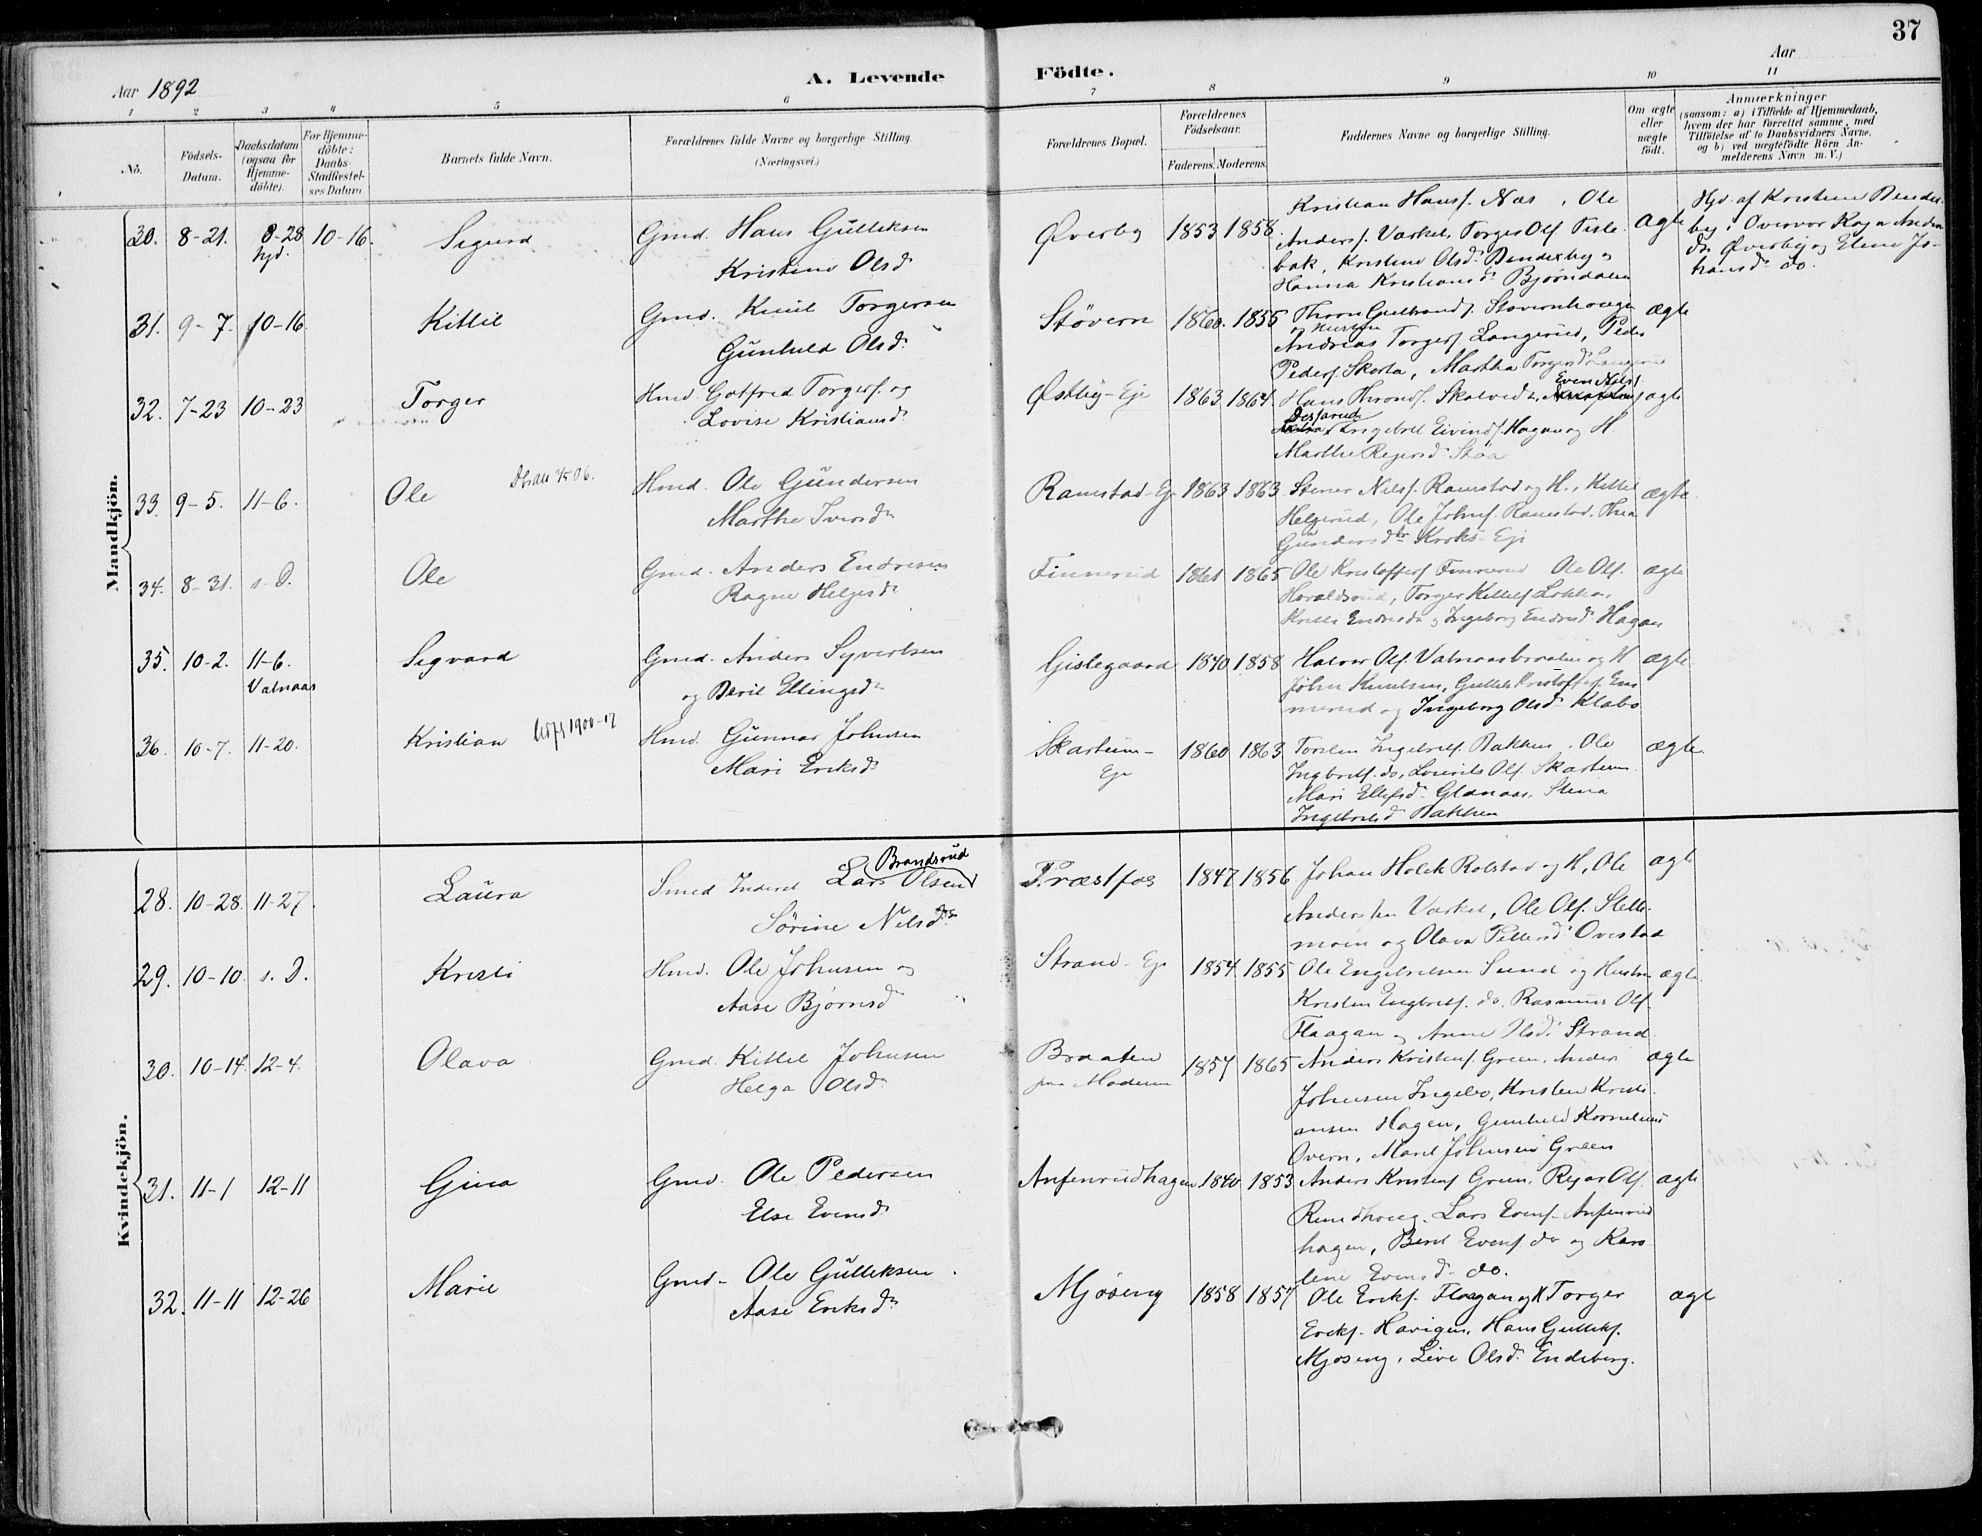 37
Aar 1892
A. Levende Födte.
Aar
1 2 3 4 5 6 7 8 9 10 11
No.
Födsels-Datum.
Daabsdatum (ogsaa for Hjemmedöbte).
For Hjemmedöbte: Daabs-Stadfestelses Datum
Barnets fulde Navn.
Forældrenes fulde Navne og borgerlige Stilling.
(Næringsvei.)
Forældrenes Bopæl.
Forældrenes Födselsaar.
Faderens. Moderens.
Faddernes Navne og borgerlige Stilling.
Om ægte eller uægte födt.
Anmærkninger
(saasom: a) i Tilfælde af Hjemmedaab,
hvem der har forrettet samme, med
Tilföielse af to Daabsvidners Navne,
og b) ved uægtefödte Börn Anmelderens Navn m. V.)
Mandkjön.
30. 8-21. 8-28 hjd. 10-16. Sigurd
Gmd. Hans Gulliksen
Kristine Olsd.
Øverby 1853 1858
Kristian Hansf. Næs, Ole
Andersf. Varkel, Torger Olf.
bak, Kristine Olsd. Benderby og
Hanna Kristiansd. Bjørndalen
ægte
Hjd. af Kristine Bender-
by i Overvær
Øverby og Elene Jo-
hansd. do.
31. 9-7. 10-16. Kittil
Gmd. Knut Torgersen
Gunhild Olsd.
Støvern 1860. 1855
Thorn Gulbrandf.
Andreas Torgerf. Langerud, Peder
Pederf. Skarta, Martha Torgersd. Langerud
ægte
32. 7-23 10-23 Torger
Hmd. Gotfred Torgerf. og
Lovise Kristiansd.
Østby-Eje 1863 1864
Hans Thronf. Even Nilsf.
Ingebret Eivindf. Hagan og H.
Marthe Reiersd. Støa
ægte
33. 9-5. 11-6. Ole
Hmd. Ole Gundersen
Marthe Iversd.
Ramstad-Eje 1863 1863
Stener Nilsf. Ramstad og H., Kittil
Helgerud, Ole Johnf. Ramstad, Thea
Gundersd. Kroks-Eje
ægte
34. 8-31. s. D. Ole
Gmd. Anders Endresen
Ragne Helgesd.
Finnerud 1861 1865
Ole Kristofferf. Finnerud Ole Olf.
Hovaldsrud, Torger Kittilf. Løkka,
Kristi Endresd. og Ingeborg Endresd. Hagan
ægte
35. 10-2. 11-6. Valnaas Sigvard
Gmd. Anders Syvertsen
og Berit Ellingsd.
Gislegaard 1840 1858
Halvor Olf. Valnaasbraaten og H
John Knudsen, Gullik Kristofferf. Em-
merud og Ingeborg Olsd. Klabo
ægte
36. 10-7. 11-20. Kristian
Hmd. Gunnar Johnsen
Mari Eriksd.
Skartum-
Eje 1860 1863
Torsten Ingebretf. Bakken, Ole
Ingbretf. do, Lauritz Olf. Skartum
Mari Ellefsd. Glanaas, Stina
Ingebretsd. Bakken
ægte
Kvindekjön.
28. 10-28. 11-27. Laura
Smed Inderst Lars Olsen Brandsrud
Sørine Nilsd.
Præstfos 1847 1856
Johan Holck Rolstad og H, Ole
Andersen Varkel, Ole Olf.
moen og Olava Pettersd. Overstad
ægte
29. 10-10. s. D. Kristi
Hmd. Ole Johnsen og
Aase Bjørnsd.
Strand-Eje 1854. 1855
Ole Engebretsen Sund og Hustru
Kristen Engbretf. do. Rasmus Olf.
Flaagan og Anne Olsd. Strand
ægte
30. 10-14. 12-4. Olava
Gmd. Kittil Johnsen
Helga Olsd.
Braaten
paa Modum 1857 1865
Anders Kristenf. Green, Anders
Johnsen Ingebo, Kristen Kristi-
ansen Hagen, Gunhild Korneliusd.
Overn, Marit Johnsen Green
ægte
31. 11-1 12-11 Gina
Gmd. Ole Pedersen
Else Evensd.
Anfinrudhagen 1840 1853
Anders Kristenf. Green, Reyer Olf.
Rudhoug, Lars Evenf. Anfinrud
hagen, Berit Evensd. do og Karo-
line Evensd. do.
ægte
32. 11-11 12-26 Marie
Gmd. Ole Gulliksen
Aase Eriksd.
Mjøseng 1858 1857
Ole Erikf. Flaagan og H Torger
Erikf. Havigen, Hans Gullikf.
Mjøseng, Live Olsd. Endeberg.
ægte